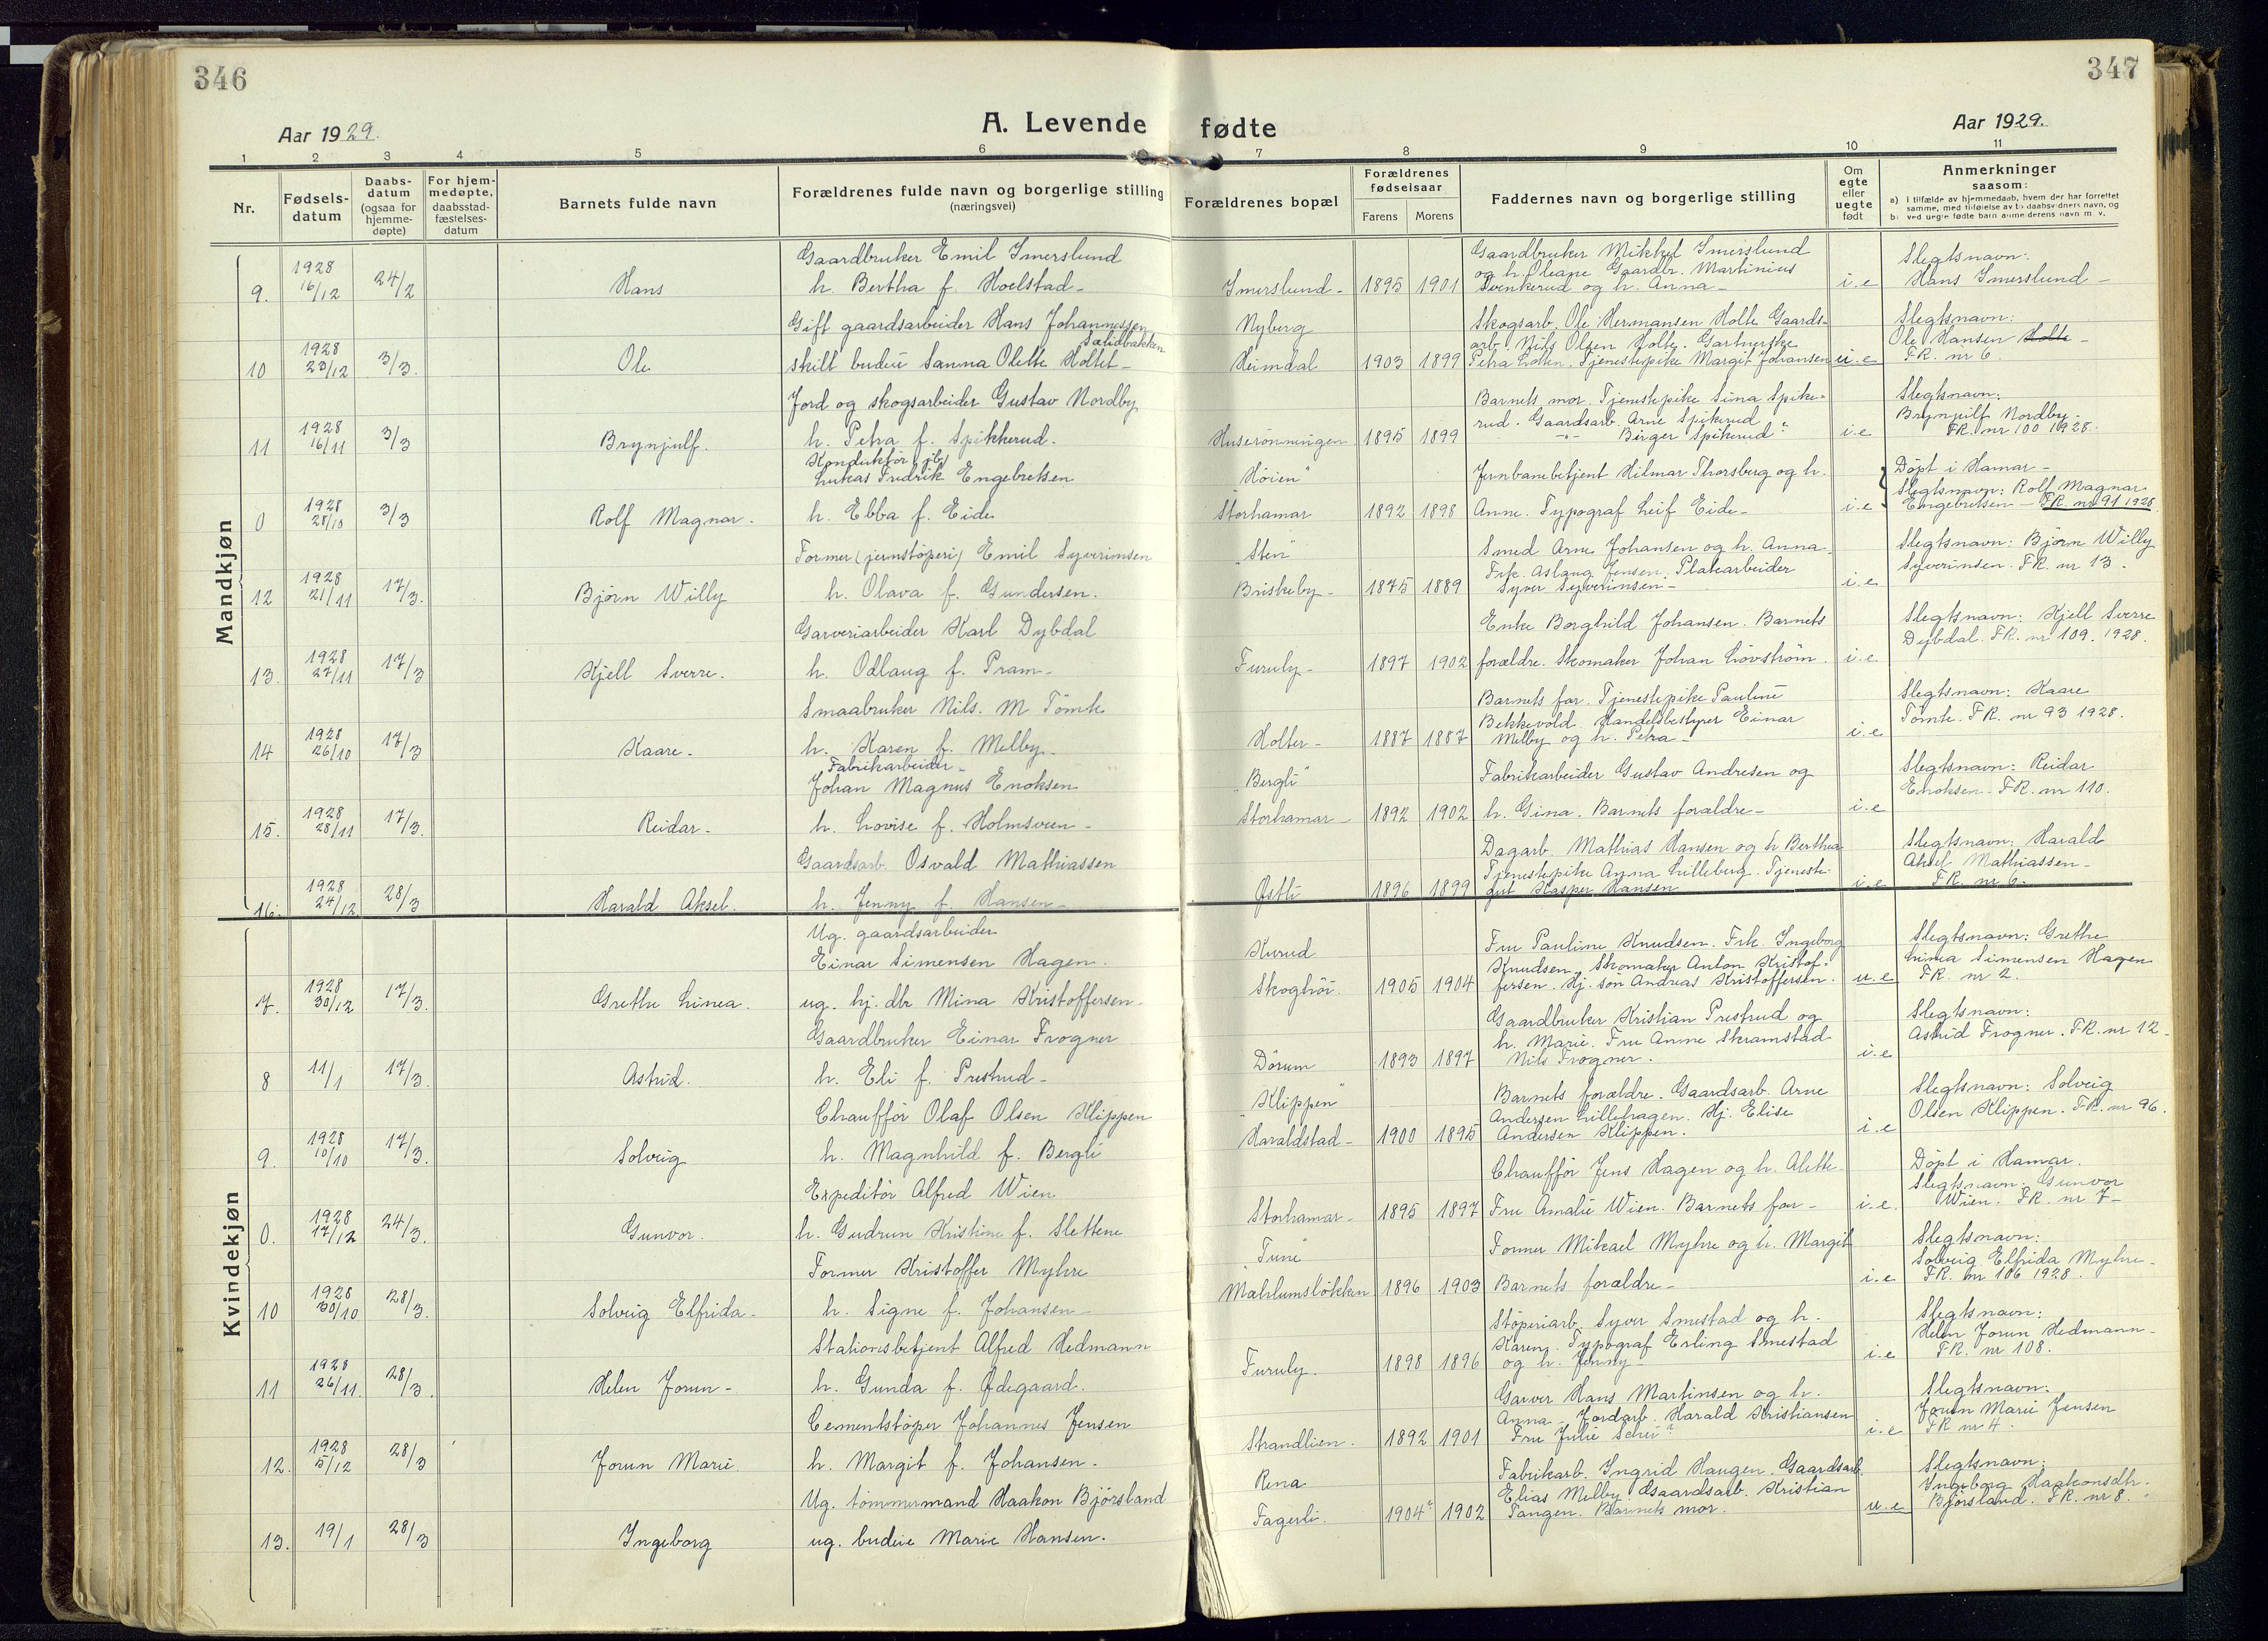 346
347
Aar 1929.
A. Levende fødte
Aar 1929.
1 2 3 4 5 6 7 8 9 10 11
Nr.
Fødsels-datum
Daabs-datum (ogsaa for hjemme-døpte)
For hjem-medøpte, daabsstad-fæstelses-datum
Barnets fulde navn
Forældrenes fulde navn og borgerlige stilling
(næringsvei)
Forældrenes bopæl
Forældrenes fødselsaar
Farens Morens
Faddernes navn og borgerlige stilling
Om egte eller uegte født
Anmerkninger
saasom:
a) i tilfælde av hjemmedaab, hvem der har forrettet samme, med tilføielse av to daabsvidners navn, og
b) ved uegte født barn anmelderens navn m. v.
Mandkjøn
Gaardbruker Emil Imerslund
Gaardbruker Mikkel Imerslund
Slegtsnavn:
9. 1928 16/12 24/2 Hans h. Bertha f. Hoelstad - Imerslund - 1895 1901 og h. Oleane Gaardbr. Martinius
Svenkerud og h. Anna - i.e Hans Imerslund -
Gift gaardsarbeider Hans Johannessen
Sælidbakken
Nyberg
Skogsarb. Ole Hermansen Holte Gaards-
Slegtsnavn:
arb. Nils Olsen Holte. Gartnerske
Ole Hansen Holte -
10 1928 23/12 3/3. Ole skilt budeie Sanna Olette Holtet - Heimdal 1903 1899 Petra Lotten. Tjenestepike Margit Johansen u.e FR. nr 6.
Jord og skogsarbeider Gustav Nordby
Barnets mor. Tjenestepike Sina Spike-
Slegtsnavn:
rud. Gaardsarb. Arne Spikerud
Brynjulf Nordby -
11 1928 16/11 3/3 Brynjulf. h. Petra f. Spikkerud. Huserønningen 1895 1899 -"- Birger Spikerud i.e FR. nr 100 1928.
Konduktør jb.
Lukas Fredrik Engebretsen
"Høien"
Jernbanebetjent Hilmar Thorsberg og h.
Døpt i Hamar -
Slegtsnavn: Rolf Magnar
0 1928 28/10 3/3 Rolf Magnar. h. Ebba f. Eide Storhamar 1892 1898 Anne. Typograf Leif Eide - i.e Engebretsen - FR. nr 91 1928.
Former (jernstøperi) Emil Syverinsen
"Sten"
Smed Arne Johansen og h. Anna.
Slegtsnavn: Bjørn Willy
Frk. Aslaug Jensen. Platearbeider
Syverinsen. FR. nr 13.
12 1928 21/11 17/3. Bjørn Willy h. Olava f. Gundersen. Briskeby - 1875 1889 Syver Syverinsen - i.e
Garveriarbeider Karl Dybdal
Enke Borghild Johansen. Barnets
Slegtsnavn: Kjell Sverre
Dybdal. FR. nr 109. 1928.
13. 1928 27/11 17/3 Kjell Sverre. h. Odlaug f. Pram - Furuly - 1897 1902 forældre. Skomaker Johan Løvstrøm. i.e
Smaabruker Nils. M Tømte
Barnets far. Tjenestepike Pauline
Slegtsnavn: Kaare
Bekkevold. Handelsbestyrer Einar
Tømte. FR. nr 93 1928.
14 1928 26/10 17/3 Kaare. h. Karen f. Melby - Holter - 1887 1887 Melby og h. Petra - i.e
Fabrikarbeider -
Johan Magnus Enoksen
"Bergli"
Fabrikarbeider Gustav Andresen og
Slegtsnavn: Reidar
Enoksen - FR. nr 110.
15. 1928 28/11 17/3. Reidar. h. Lovise f. Holmsveen - Storhamar - 1892 1902 h. Gina. Barnets forældre - i.e
Gaardsarb. Osvald Mathiassen
Dagarb. Mathias Hansen og h Berthea
Slegtsnavn: Harald
Tjenestepike Anna Lilleberg. Tjeneste-
Aksel Mathiassen -
16. 1928 24/12 28/3 Harald Aksel. h. Jenny f. Hansen - Østli 1896 1899 gut Kasper Hansen i.e FR. nr 6.
Kvindekjøn
Ug. gaardsarbeider
Einar Simensen Hagen.
Kurud
Fru Pauline Knudsen. Frk. Ingeborg
Slegtsnavn: Grethe
Knudsen. Skomaker Anton Kristof-
Linea Simensen Hagen
7. 1928 30/12 17/3. Grethe Linea. ug. hj. dtr Mina Kristoffersen - Skoghøi. 1905 1904 fersen. Hj. søn Andreas Kristoffersen. u.e FR. nr 2.
Gaardbruker Einar Frogner
Gaardbruker Kristian Prestrud og
Slegtsnavn:
h. Marie. Fru Anne Skramstad
Astrid Frogner. FR. nr 12 -
8 11/1 17/3. Astrid. h. Eli f. Prestrud - Dørum 1893 1897 Nils Frogner. i.e
Chauffør Olaf Olsen Klippen
"Klippen"
Barnets forældre. Gaardsarb. Arne
Slegtsnavn: Solveig
Andersen Lillehagen. Hj. Elise
Olsen Klippen. FR. nr 96.
9. 1928 10/10 17/3. Solveig h. Magnhild f. Bergli Haraldstad - 1900 1895 Andersen Klippen. i.e
Expeditør Alfred Wien
Chauffør Jens Hagen og h. Alette -
Døpt i Hamar.
Slegtsnavn: Gunvor
0. 1928 17/12 24/3. Gunvor. h. Gudrun Kristine f. Slettene Storhamar - 1895 1897 Fru Amalie Wien. Barnets far - i.e. Wien. FR. nr 7 -
Former Kristoffer Myhre
"Tune"
Former Mikael Myhre og h. Margit
Slegtsnavn:
Solveig Elfrida Myhre -
10 1928 30/10 28/3. Solveig Elfrida - h. Signe f. Johansen - Mæhlumsløkken 1896 1903 Barnets forældre - i.e FR. nr 106 1928.
Stationsbetjent Alfred Hedmann
Støperiarb. Syver Smestad og h.
Slegtsnavn:
Karen. Typograf Erling Smestad
Helen Jorun Hedmann -
11 1928 26/11. 28/3. Helen Jorun - h. Gunda f. Ødegaard. Furuly. 1898 1896 og h. Jenny - i.e FR. nr 108.
Cementstøper Johannes Jensen
Garver Hans Martinsen og h.
Slegtsnavn:
Anna - Jordarb. Harald Kristiansen
Jorun Marie Jensen
12. 1928 5/12 28/3 Jorun Marie. h. Margit f. Johansen. Strandlien. 1892 1901 Fru Julie i.e FR nr 4.
Ug. tømmermand Haakon Bjørsland
Rena
Fabrikarb. Ingrid Haugen. Gaardsarb.
Slegtsnavn:
Elias Melby. Gaardsarb. Kristian
Ingeborg Haakonsdtr.
13. 19/1 28/3 Ingeborg ug. budeie Marie Hansen. Fagerli. 1904 1902 Tangen. Barnets mor. u.e Bjørsland. FR. nr 8.